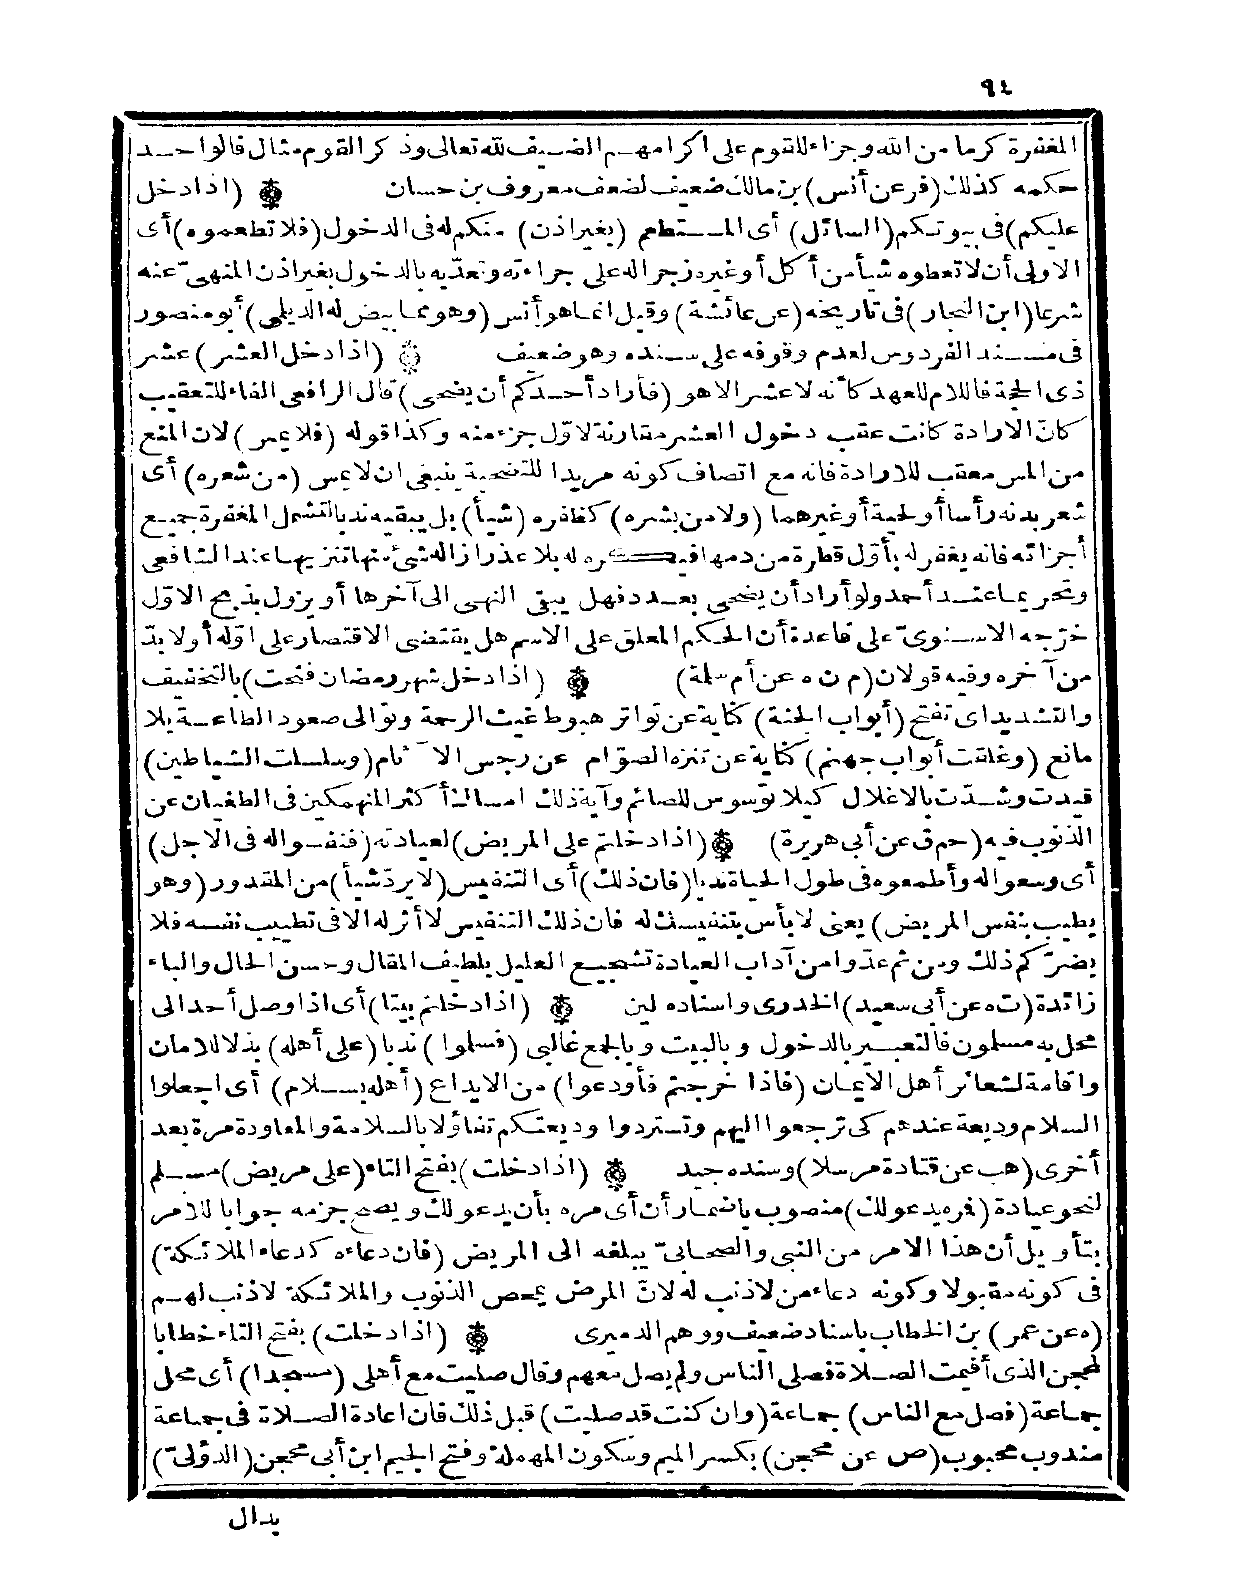 ٩٤
المغفرة كرما من الله وجزاء للقوم على اكرامهم الضيف لله تعالى وذكر القوم مثال فالواحد
حكمه كذلك (فر عن أنس) بن مالك ضعيف لضعف معروف بن حسان ۞ (اذا دخل
عليكم) فى بيوتكم (السائل) أى المستطعم (بغير اذن) منكم له فى الدخول (فلا تطعموه) أى
الاولى أن لا تعطوه شيأ من أكل أو غيره زجرا له على جراءته وتعديه بالدخول بغير اذن المنهىّ عنه
شرعا (ابن النجار) فى تاريخه (عن عائشة) وقيل انما هو أنس (وهو مما بيض له الديلمى) أبو منصور
فى مسند الفردوس لعدم وقوفه على سنده وهو ضعيف ۞ (اذا دخل العشر) عشر
ذى الحجة فاللام للعهد كأنه لا عشر الا هو (فأراد أحدكم أن يضحى) قال الرافعى الفاء للتعقيب
كانّ الارادة كانت عقب دخول العشر مقارنة لاوّل جزء منه وكذا قوله (فلا يمس) لان المنع
من المس معقب للارادة فانه مع اتصاف كونه مريدا للتضحية ينبغى ان لا يمس (من شعره) أى
شعر بدنه رأسا أو لحية أو غيرهما (ولا من بشره) كظفره (شيأ) بل يبقيه ندبا لتشمل المغفرة جميع
أجزائه فانه يغفر له بأوّل قطرة من دمها فيكره له بلا عذر ازالة شئ منها تنزيها عند الشافعى
وتحريما عند أحمد ولو أراد أن يضحى بعدد فهل يبقى النهى الى آخرها أو يزول بذبح الاوّل
خرّجه الاسنوىّ على قاعدة أن الحكم المعلق على الاسم هل يقتضى الاقتصار على اوّله أو لا بدّ
من آخره وفيه قولان (م ن ه عن أم سلمة) ۞ (اذا دخل شهر رمضان فتحت) بالتخفيف
والتشديد اى تفتح (أبواب الجنة) كناية عن تواتر هبوط غيث الرحمة وتوالى صعود الطاعة بلا
مانع (وغلقت أبواب جهنم) كناية عن تنزه الصوّام عن رجس الآثام (وسلسلت الشياطين)
قيدت وشدّت بالاغلال كيلا توسوس للصائم وآية ذلك امساك أكثر المنهمكين فى الطغيان عن
الذنوب فيه (حم ق عن أبى هريرة) ۞ (اذا دخلتم على المريض) لعيادته (فنفسوا له فى الاجل)
أى وسعوا له وأطمعوه فى طول الحياة ندبا (فان ذلك) أى التنفيس (لا يردّ شيأ) من المقدور (وهو
يطيب بنفس المريض) يعنى لا بأس بتنفيسك له فان ذلك التنفيس لا أثر له الا فى تطييب نفسه فلا
يضرّكم ذلك ومن ثم عدّوا من آداب العيادة تشجيع العليل بلطيف المقال وحسن الحال والباء
زائدة (ت ه عن أبى سعيد) الخدرى واسناده لين ۞ (اذا دخلتم بيتا) أى اذا وصل أحد الى
محل به مسلمون فالتعبير بالدخول وبالبيت وبالجمع غالبى (فسلموا) ندبا (على أهله) بذلا للامان
واقامة لشعائر أهل الايمان (فاذا خرجتم فأودعوا) من الايداع (أهله بسلام) أى اجعلوا
السلام وديعة عندهم كى ترجعوا اليهم وتستردوا وديعتكم تفاؤلا بالسلامة والمعاودة مرة بعد
أخرى (هب عن قتادة مرسلا) وسنده جيد ۞ (اذا دخلت) بفتح التاء (على مريض) مسلم
لنحو عيادة (فمره يدعو لك) منصوب باضمار أن أى مره بأن يدعو لك ويصح جزمه جوابا للامر
بتأويل أن هذا الامر من النبى والصحابىّ يبلغه الى المريض (فان دعاءه كدعاء الملائكة)
فى كونه مقبولا وكونه دعاء من لا ذنب له لانّ المرض يمحص الذنوب والملائكة لا ذنب لهم
(ه عن عمر) بن الخطاب باسناد ضعيف ووهم الدميرى ۞ (اذا دخلت) بفتح التاء خطابا
لمحجن الذى أقيمت الصلاة فصلى الناس ولم يصل معهم وقال صليت مع أهلى (مسجدا) أى محل
جماعة (فصل مع الناس) جماعة (وان كنت قد صليت) قبل ذلك فان اعادة الصلاة فى جماعة
مندوب محبوب (ص عن محجن) بكسر الميم وسكون المهملة وفتح الجيم ابن أبى محجن (الدؤلىّ)
بدال